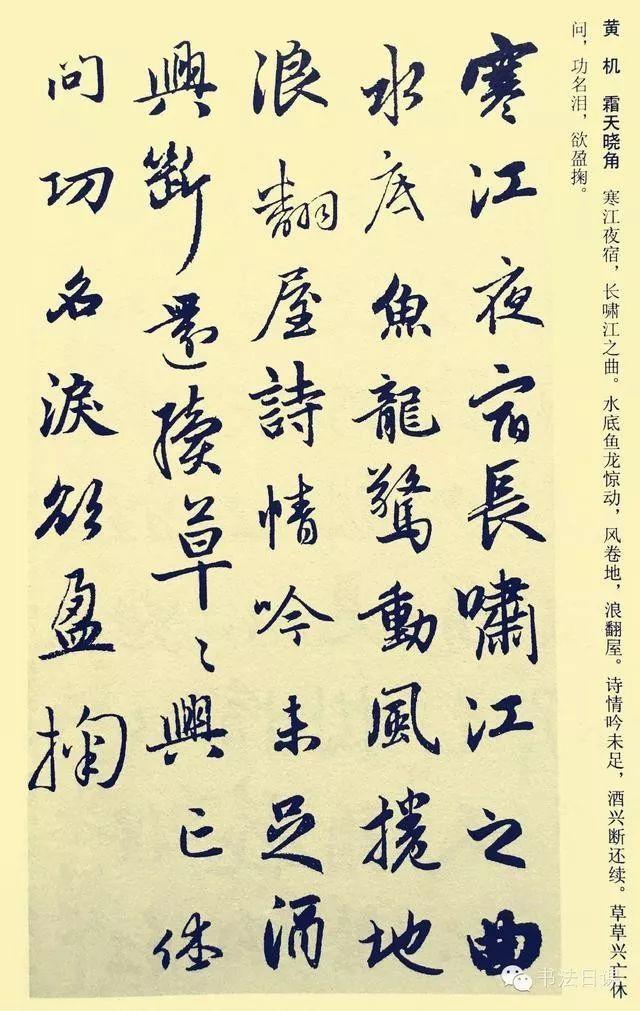 黄 机 霜天晓角 寒江夜宿，长啸江之曲。水底鱼龙惊动，风卷地，浪翻屋。诗情吟未足，酒兴断还续。草草兴亡休
问，功名泪，欲盈掬。
寒江夜宿長嘯江之曲
水底魚龍驚動風捲地
浪翻屋詩情吟未足酒
興斷還續草〻興亡休
問功名淚欲盈掬
书法日课